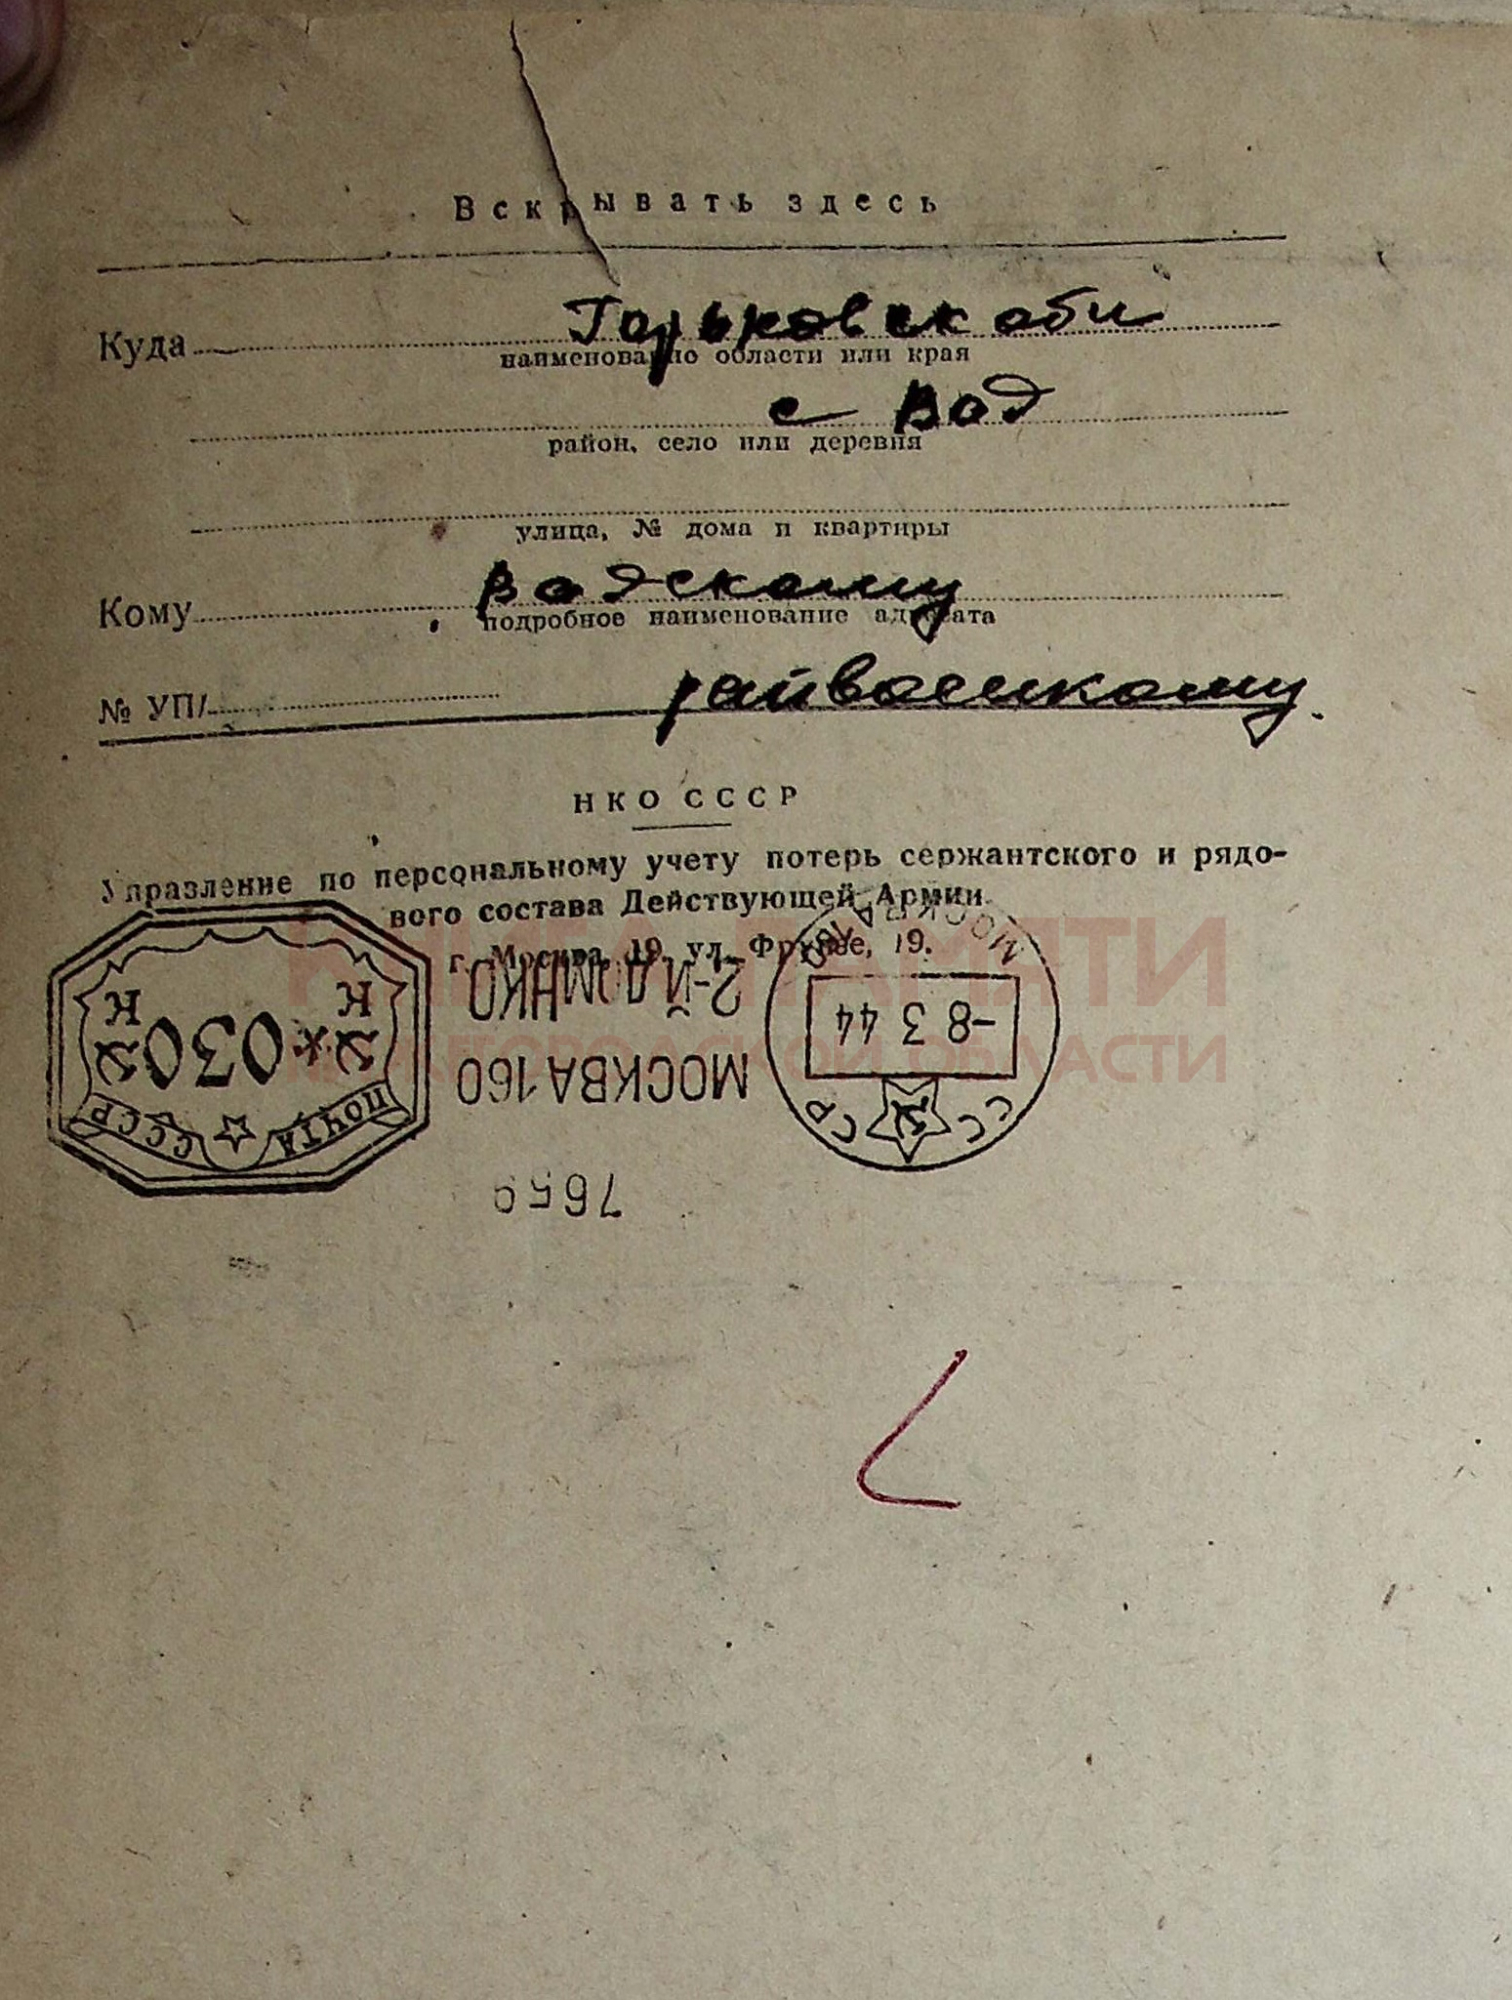 Вскрывать здесь
Куда Горьковск обл
наименование области или края
с Вад
район, село или деревня
улица, № дома и квартиры
Кому Вадскому
подробное наименование адресата
№ УП/ райвоенкому.
НКО СССР
Управление по персональному учету потерь сержантского и рядо-
вого состава Действующей Армии
г. Москва, 19, ул. Фрунзе, 19.
КНИГА ПАМЯТИ
НИЖЕГОРОДСКОЙ ОБЛАСТИ
МОСКВА
-8 3 44
СССР
2-Й ДОМ НКО
МОСКВА 160
7659
К К
030
ПОЧТА СССР